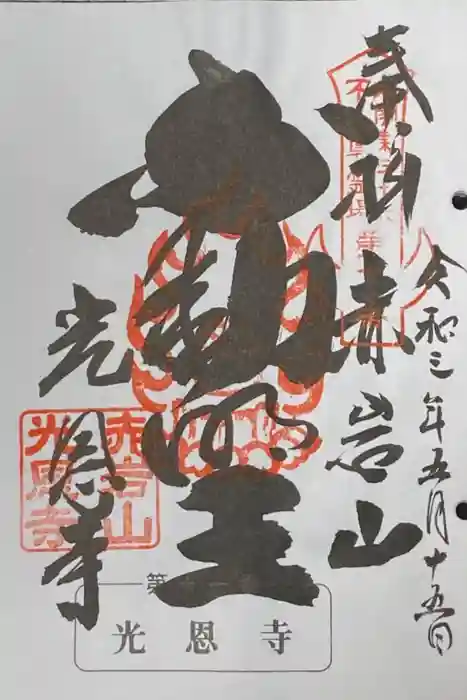 奉拝
赤岩山
令和三年五月十五日
不動明王
光恩寺
赤岩山
光恩寺
第
光恩寺